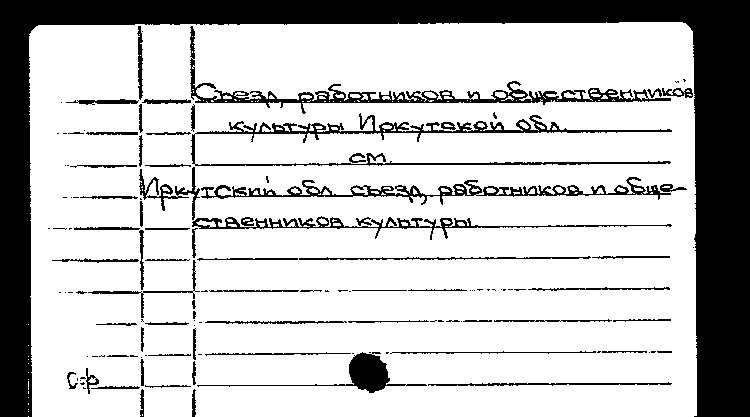 Съезд работников и общественников
культуры Иркутской обл.
см.
Иркутский обл. съезд работников и обще-
ственников культуры.